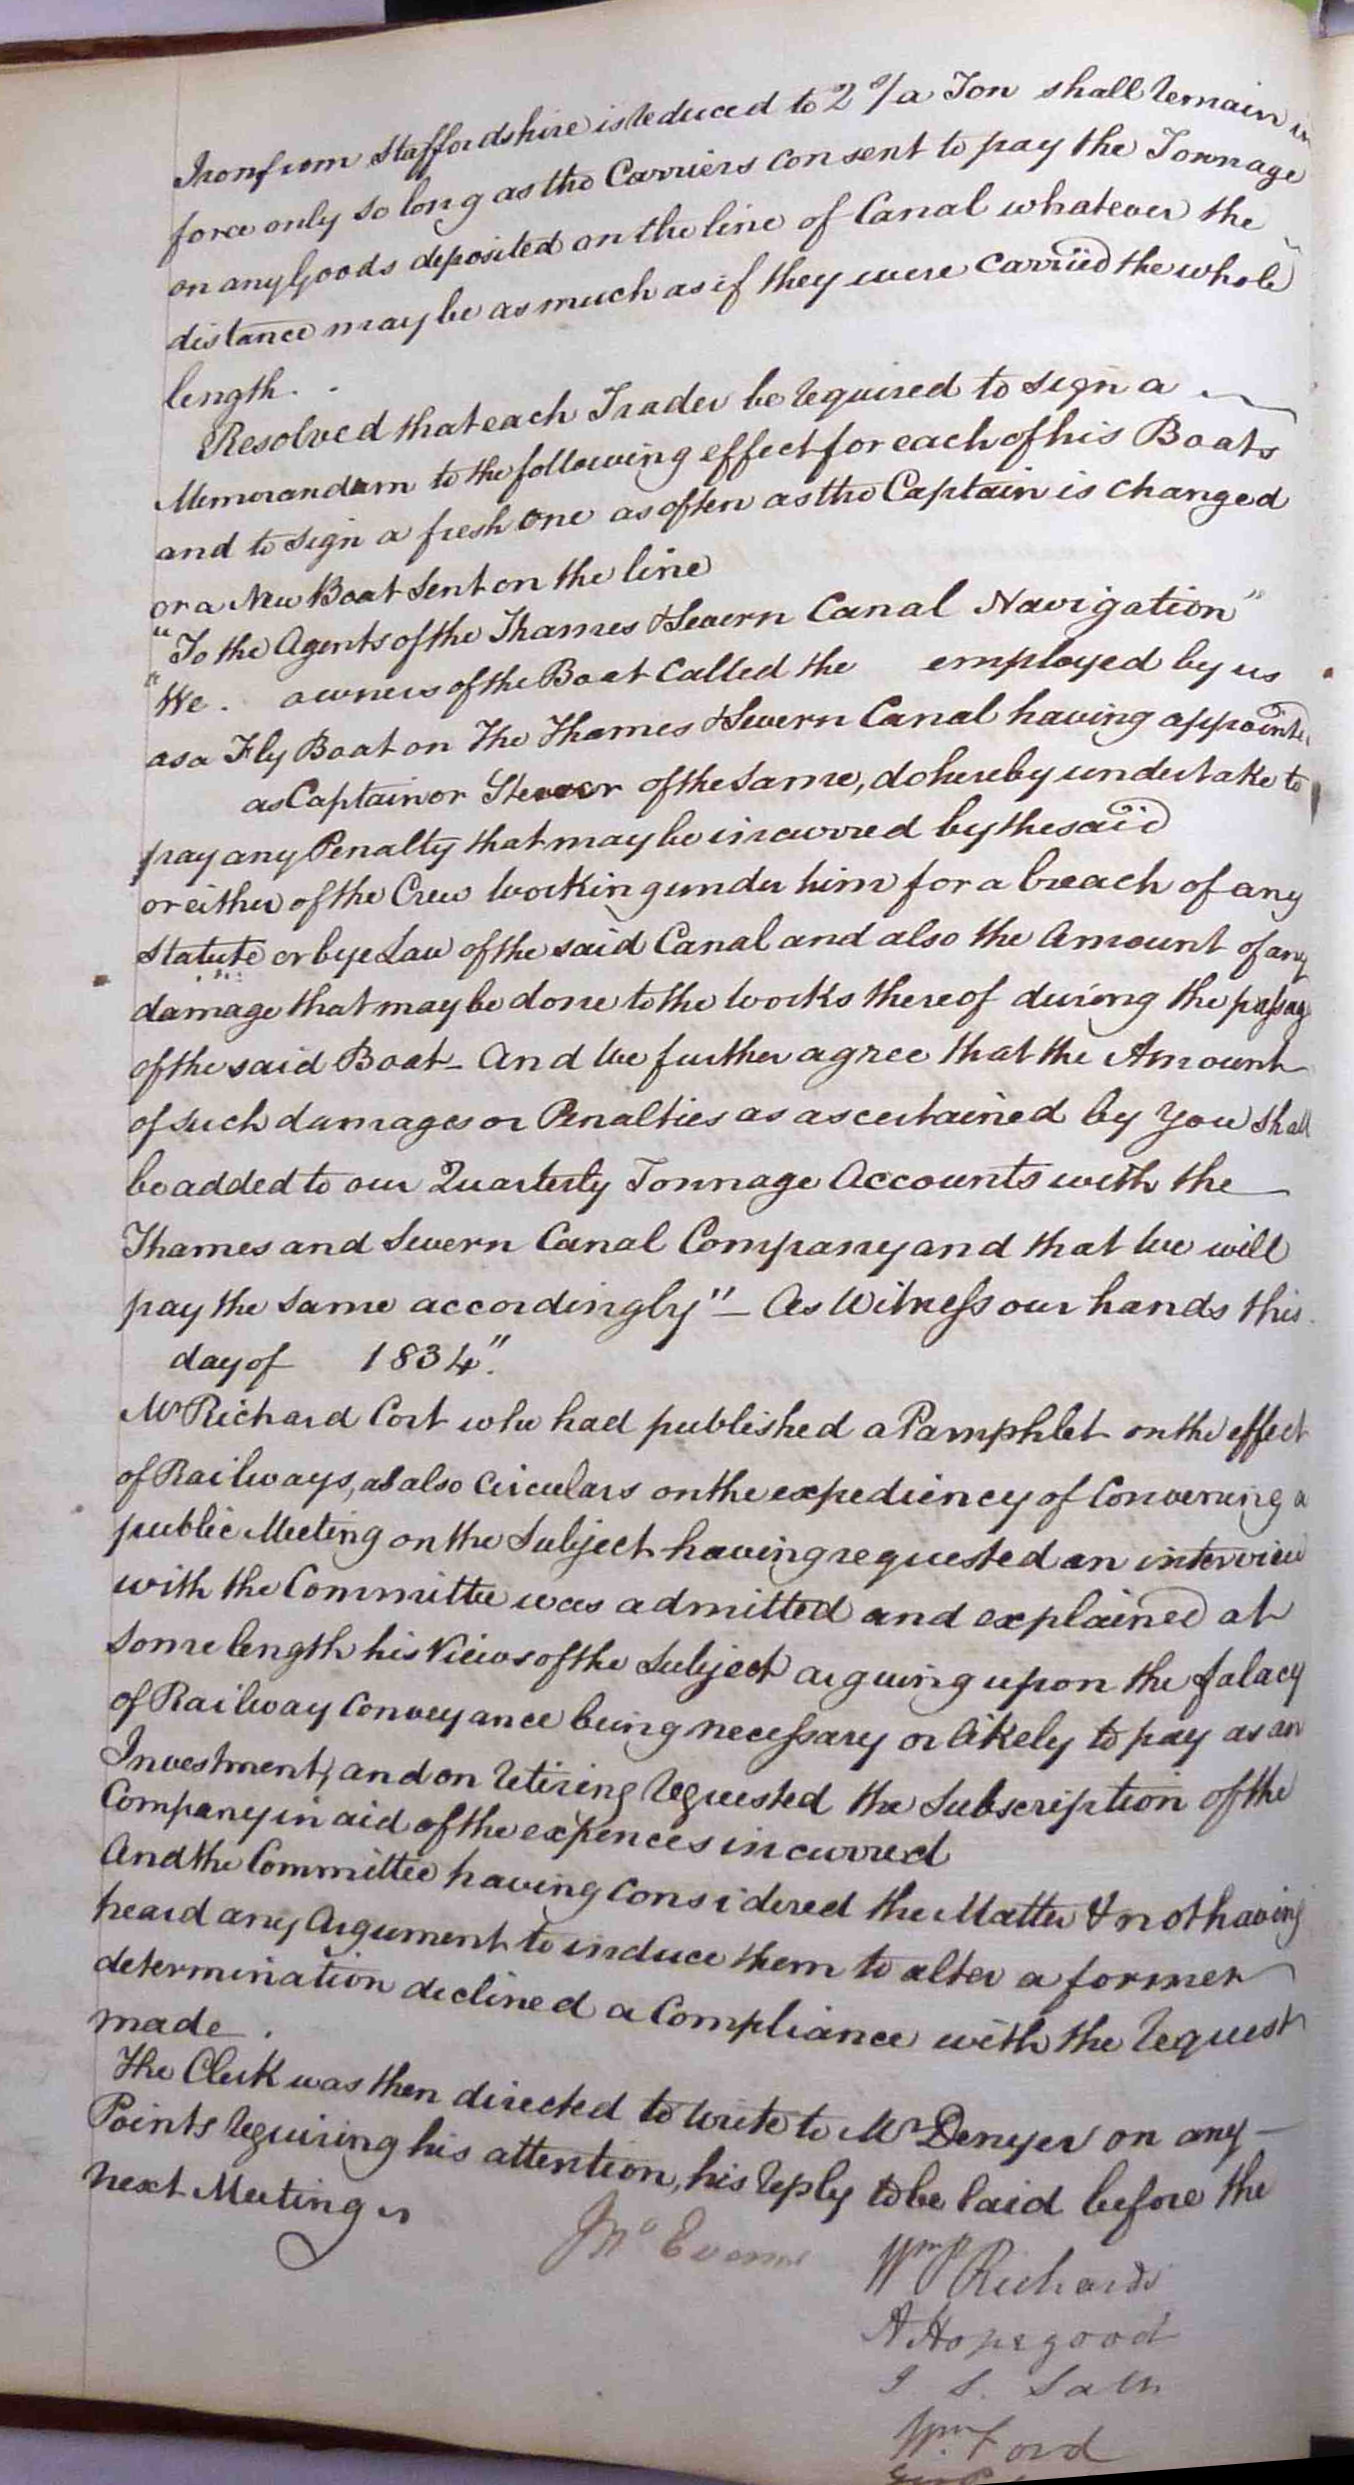 Iron from Staffordshire is reduced to 2s/ a Ton shall remain in
force only so long as the Carriers consent to pay the Tonnage
on any Goods deposited on the line of Canal whatever the
distance may be as much as if they were carried the whole
length.
Resolved that each Trader be required to sign a
Memorandum to the following effect for each of his Boats
and to sign a fresh one as often as the Captain is changed
or a New Boat sent on the line
"To the Agents of the Thames & Severn Canal Navigation"
"We . owners of the Boat called the employed by us
as a Fly Boat on The Thames & Severn Canal having appointed
as Captain or Steerer of the same, do hereby undertake to
pay any Penalty that may be incurred by the said
or either of the Crew working under him for a breach of any
Statute or bye Law of the said Canal and also the Amount of any
damage that may be done to the works thereof during the passage
of the said Boat - And we further agree that the Amount
of such damages or Penalties as ascertained by you shall
be added to our Quarterly Tonnage Accounts with the
Thames and Severn Canal Company and that we will
pay the same accordingly" - As Witness our hands this
day of 1834".
Mr Richard Cort who had published a Pamphlet on the effect
of Railways, as also Circulars on the expediency of Convening a
public Meeting on the Subject having requested an interview
with the Committee was admitted and explained at
some length his Views of the Subject arguing upon the falacy
of Railway Conveyance being necessary or likely to pay as an
Investment, and on retiring requested the Subscription of the
Company in aid of the expences incurred
And the Committee having considered the Matter & not having
heard any Argument to induce them to alter a former
determination declined a Compliance with the request
made.
The Clerk was then directed to write to Mr Denyer on any
Points requiring his attention, his reply to be laid before the
next Meeting
Jno Evans
Wm P Richards
A Hopegood
J. S. Salt
Wm Ford